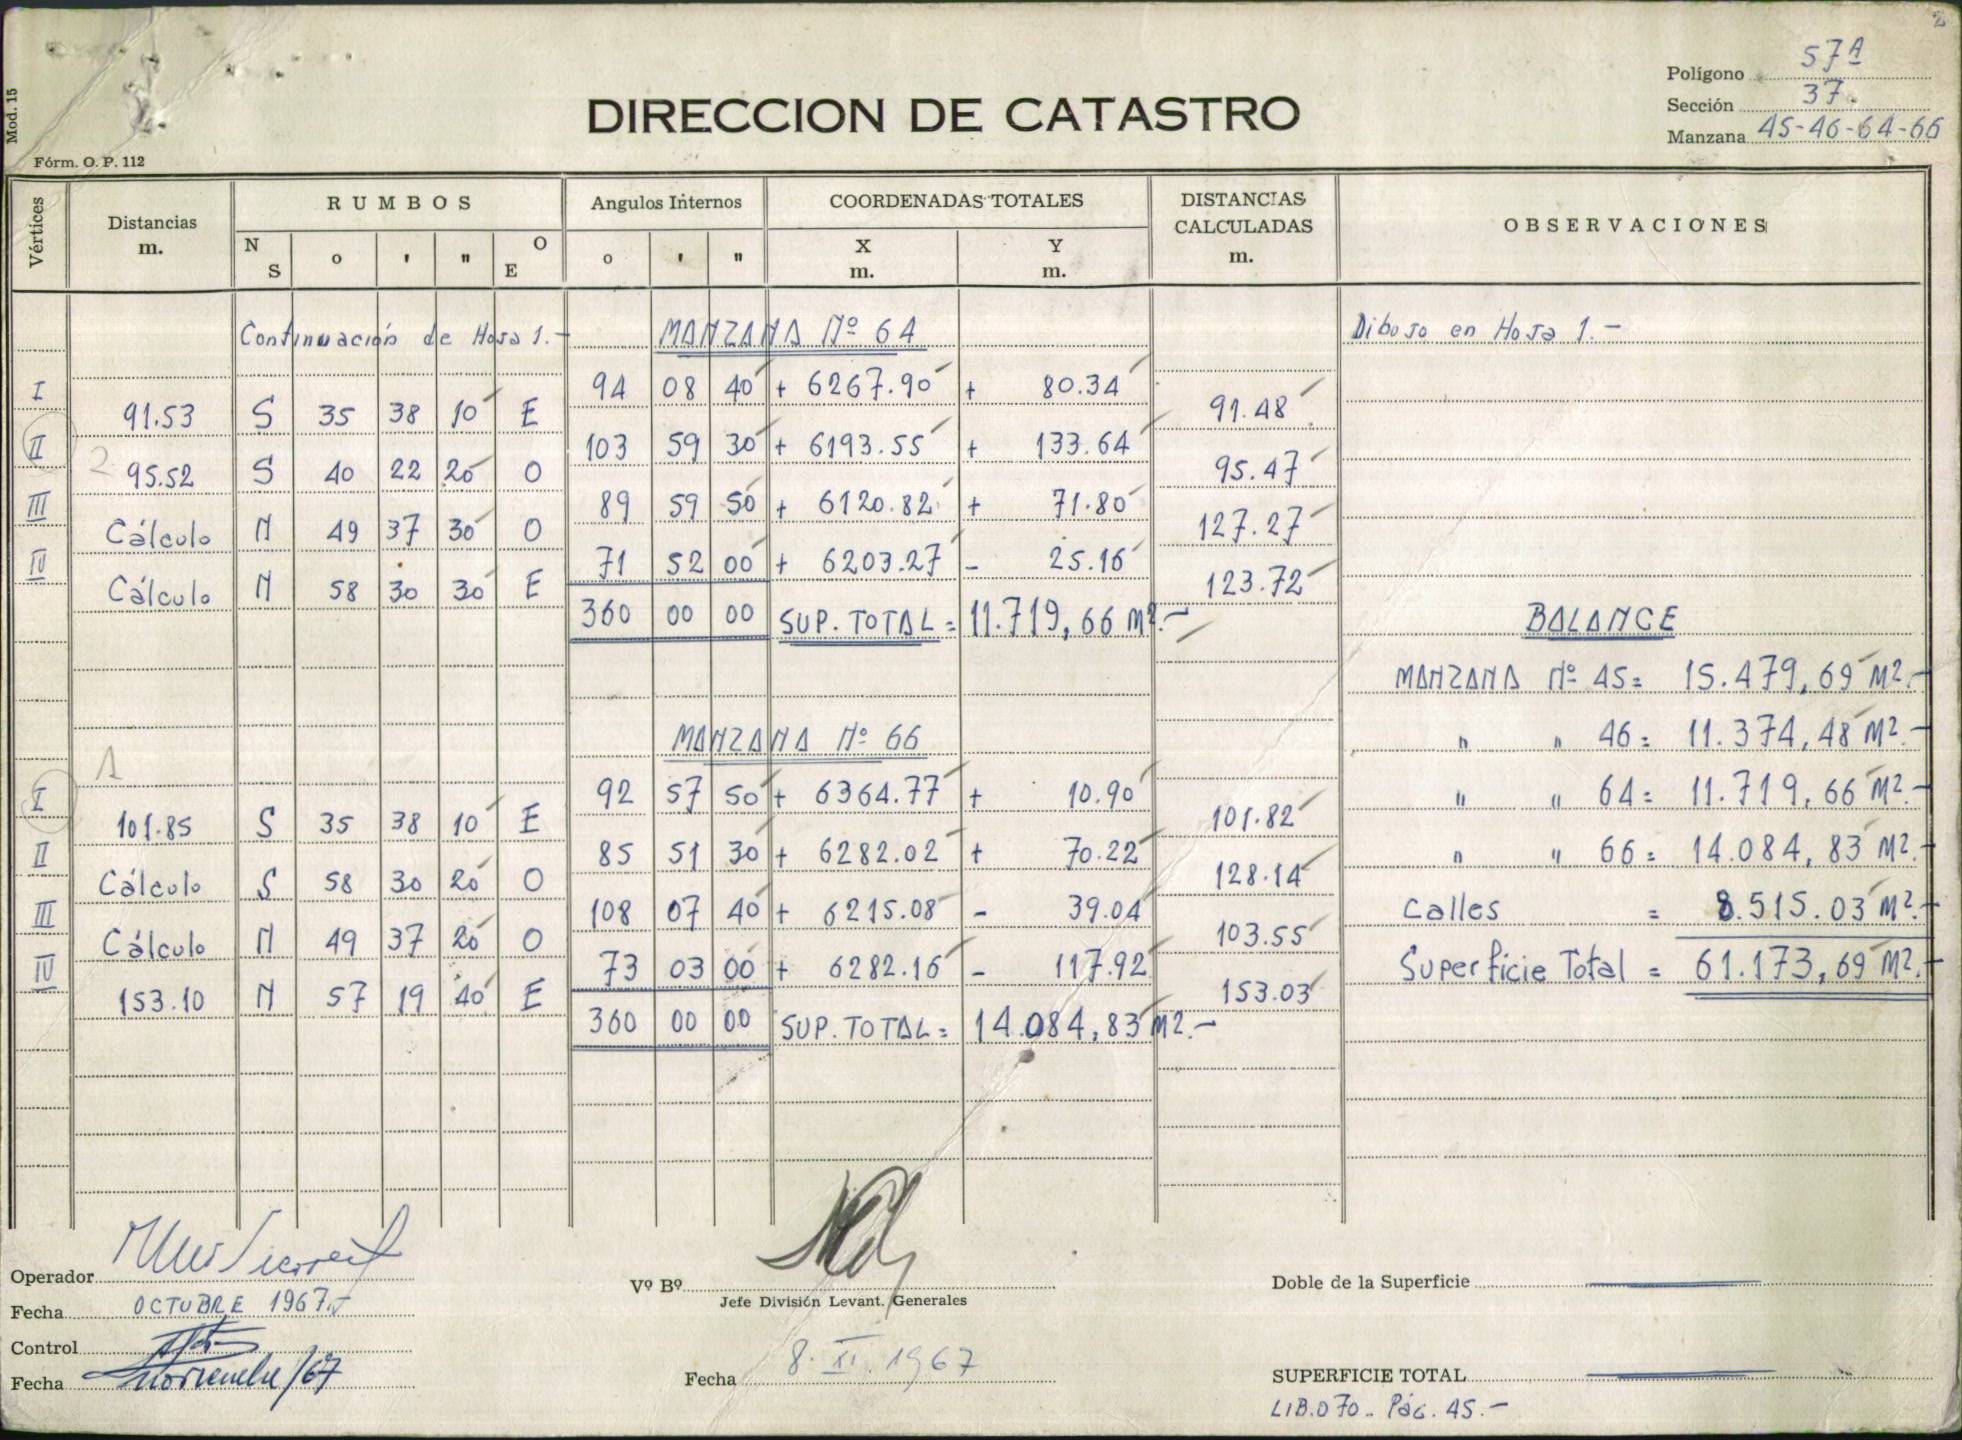 2
Mod. 15
Fórm. O. P. 112
DIRECCION DE CATASTRO
Polígono 57A
Sección 37.
Manzana 45-46-64-66
Vértices Distancias m. RUMBOS N S o ' " O E Angulos Internos o ' " COORDENADAS TOTALES X m. Y m. DISTANCIAS CALCULADAS m. OBSERVACIONES
Continuación de Hoja 1.- MANZANA Nº 64 Dibujo en Hoja 1.-
I 94 08 40 + 6267.90 + 80.34
91.53 S 35 38 10 E 91.48
II 103 59 30 + 6193.55 + 133.64
2 95.52 S 40 22 20 O 95.47
III 89 59 50 + 6120.82 + 71.80
Cálculo N 49 37 30 O 127.27
IV 71 52 00 + 6203.27 - 25.16
Cálculo N 58 30 30 E 123.72
360 00 00 SUP. TOTAL = 11.719,66 M2.-
BALANCE
MANZANA Nº 45= 15.479,69 M2.-
MANZANA Nº 66
" " 46= 11.374,48 M2.-
1
I 92 57 50 + 6364.77 + 10.90
" " 64= 11.719,66 M2.-
101.85 S 35 38 10 E 101.82
II 85 51 30 + 6282.02 + 70.22
" " 66= 14.084,83 M2.-
Cálculo S 58 30 20 O 128.14
III 108 07 40 + 6215.08 - 39.04
Calles = 8.515.03 M2.-
Cálculo N 49 37 20 O 103.55
IV 73 03 00 + 6282.16 - 117.92
Superficie Total = 61.173,69 M2.-
153.10 N 57 19 40 E 153.03
360 00 00 SUP. TOTAL = 14.084,83 M2.-
Operador
Vº Bº
Jefe División Levant. Generales
Doble de la Superficie
Fecha OCTUBRE 1967.-
Control
Fecha Noviembre/67
Fecha 8. XI. 1967
SUPERFICIE TOTAL
LIB. 070.. Pág. 45.-